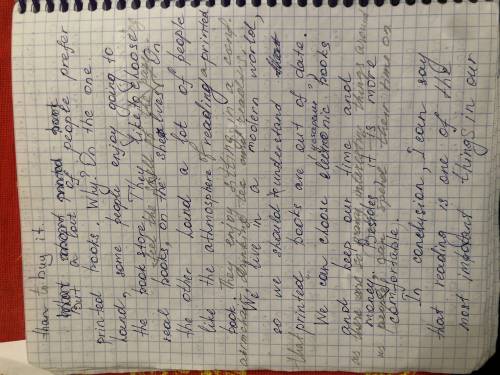 than to buy it.
But a lot of people prefer
printed books. Why? On the one
hand, some people enjoy going to
the book store. They like to choose
real books, on the shelves. On
the other hand a lot of people
like the atmosphere of reading a printed
book. They enjoy sitting in a
We live in a modern world,
so we should understand
that printed books are out of date.
We can choose electronic books
and keep our time and
money. Besides it is more
comfortable.
In conclusion, I can say
that reading is one of the
most important things in our